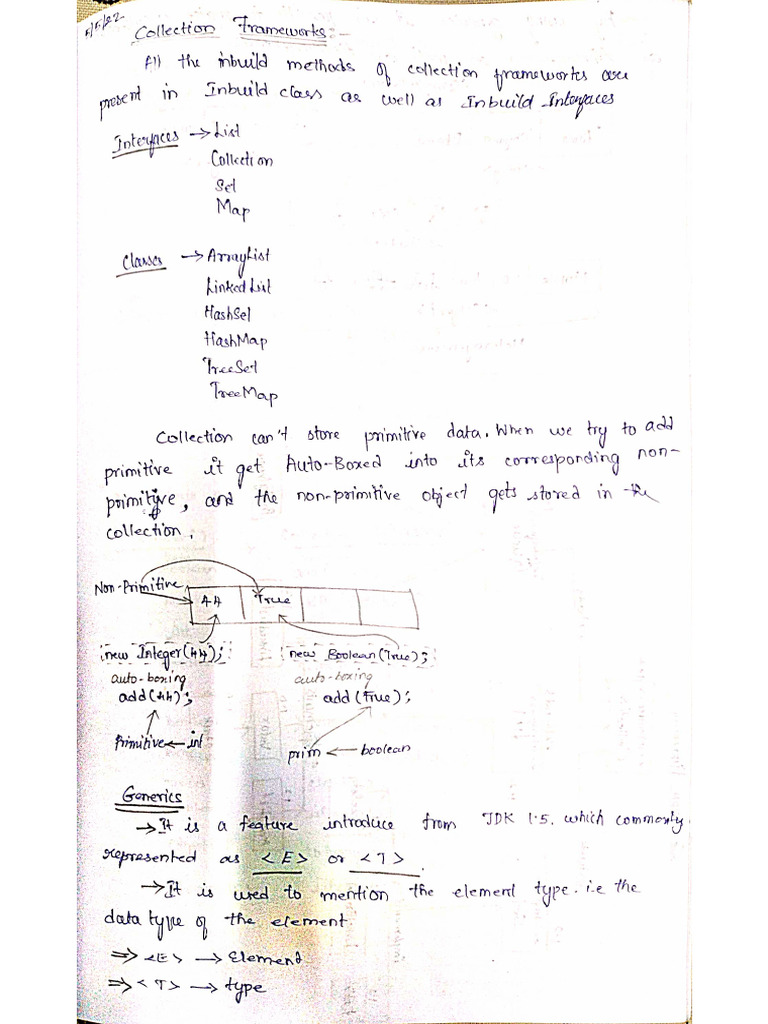 5/5/22
Collection Frameworks:-
All the inbuild methods of collection frameworks are
present in Inbuild class as well as Inbuild Interfaces
Interfaces → List
Collection
Set
Map
Classes → ArrayList
LinkedList
HashSet
HashMap
TreeSet
TreeMap
Collection can't store primitive data. When we try to add
primitive it get Auto-Boxed into its corresponding non-
primitive, and the non-primitive object gets stored in the
collection.
Non-Primitive
44 True
new Integer(44); new Boolean(True);
auto-boxing auto-boxing
add(44); add(True);
Primitive ← int prim ← boolean
Generics
→ It is a feature introduce from JDK 1.5. which commonly
represented as <E> or <T>
→ It is used to mention the element type. i.e the
data type of the element
⇒ <E> → Element
⇒ <T> → type